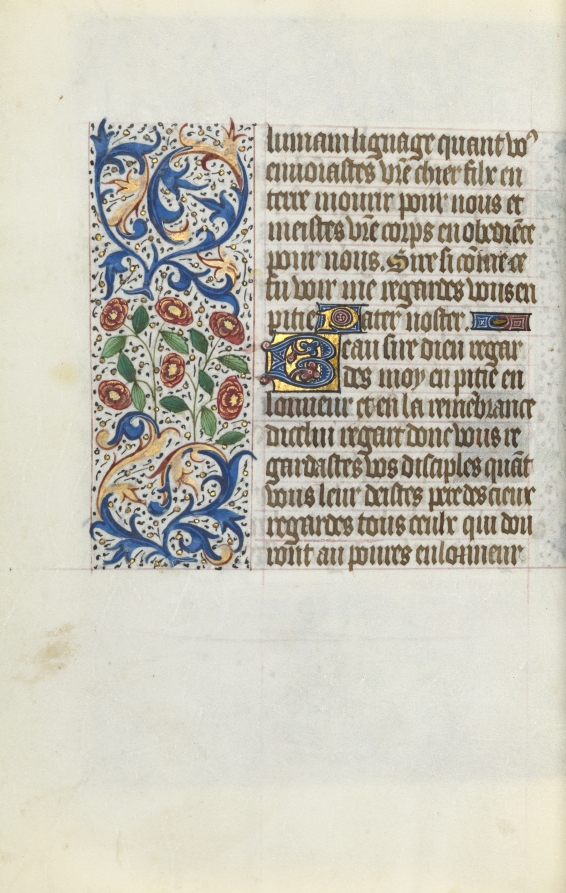 lumain lignage quant voꝰ
envoiastes vr̄e chier filz en
terre mourir pour nous et
meistes vr̄e corps en obediēce
pour nous. Sire si cōme ce
fu voir me regardes vous en
pitie Pater noster.
Beau sire dieu regar
des moy en pitie en
lonneur et en la remēbrance
dicelui regart donc vous re
gardastes vos disciples quāt
vous leur deistes pere des cieux
regardes tous ceulx qui don
ront au poures en lonneur